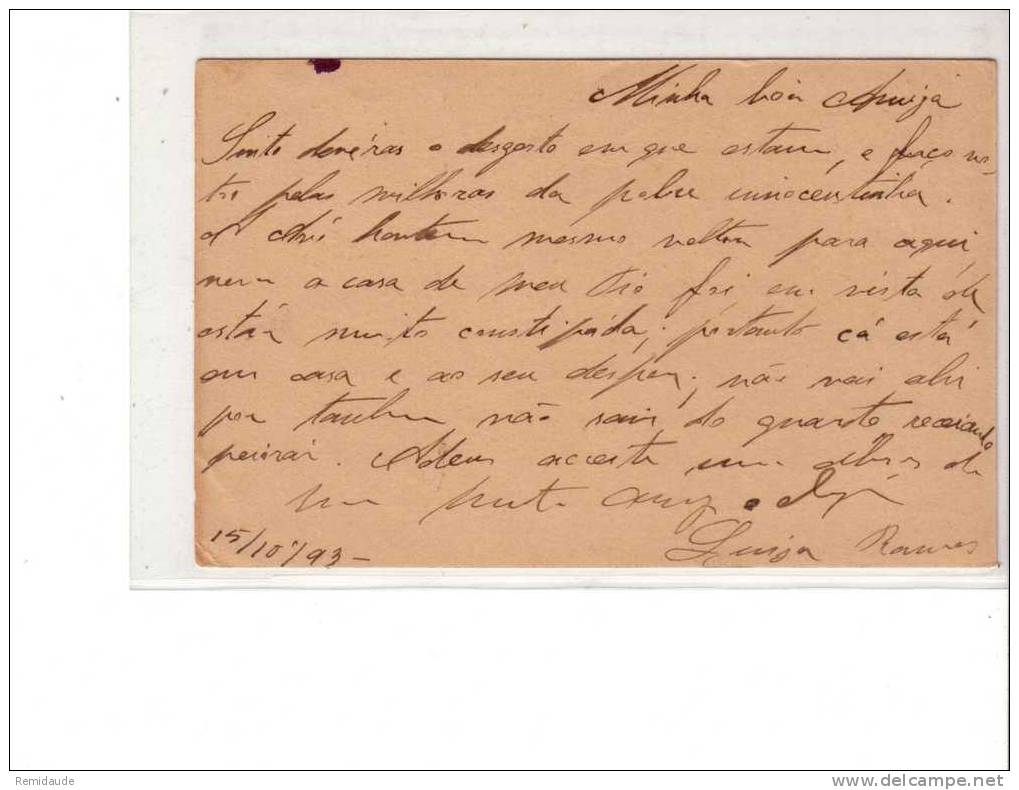 Minha boa Amiga
Sinto devéras o desgosto em que estam, e faço vo-
tos pelas milhoras da pobre innocentinha.
A Avó hontem mesmo voltou para aqui,
nem a casa de meu tio foi em vista de
estár muito constipáda; portanto cá está
em casa e ao seu dispor; não vai ahi
por tambem não sair do quarto receiando
peiorár. Adeus acceite um
Luisa Ramos
15/10/93-
Remidaude
www.delcampe.net